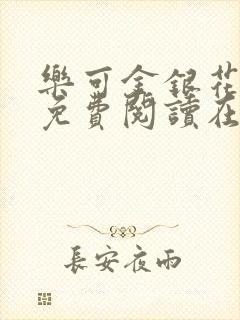 樂可金銀花
免費閱讀在
長安夜雨